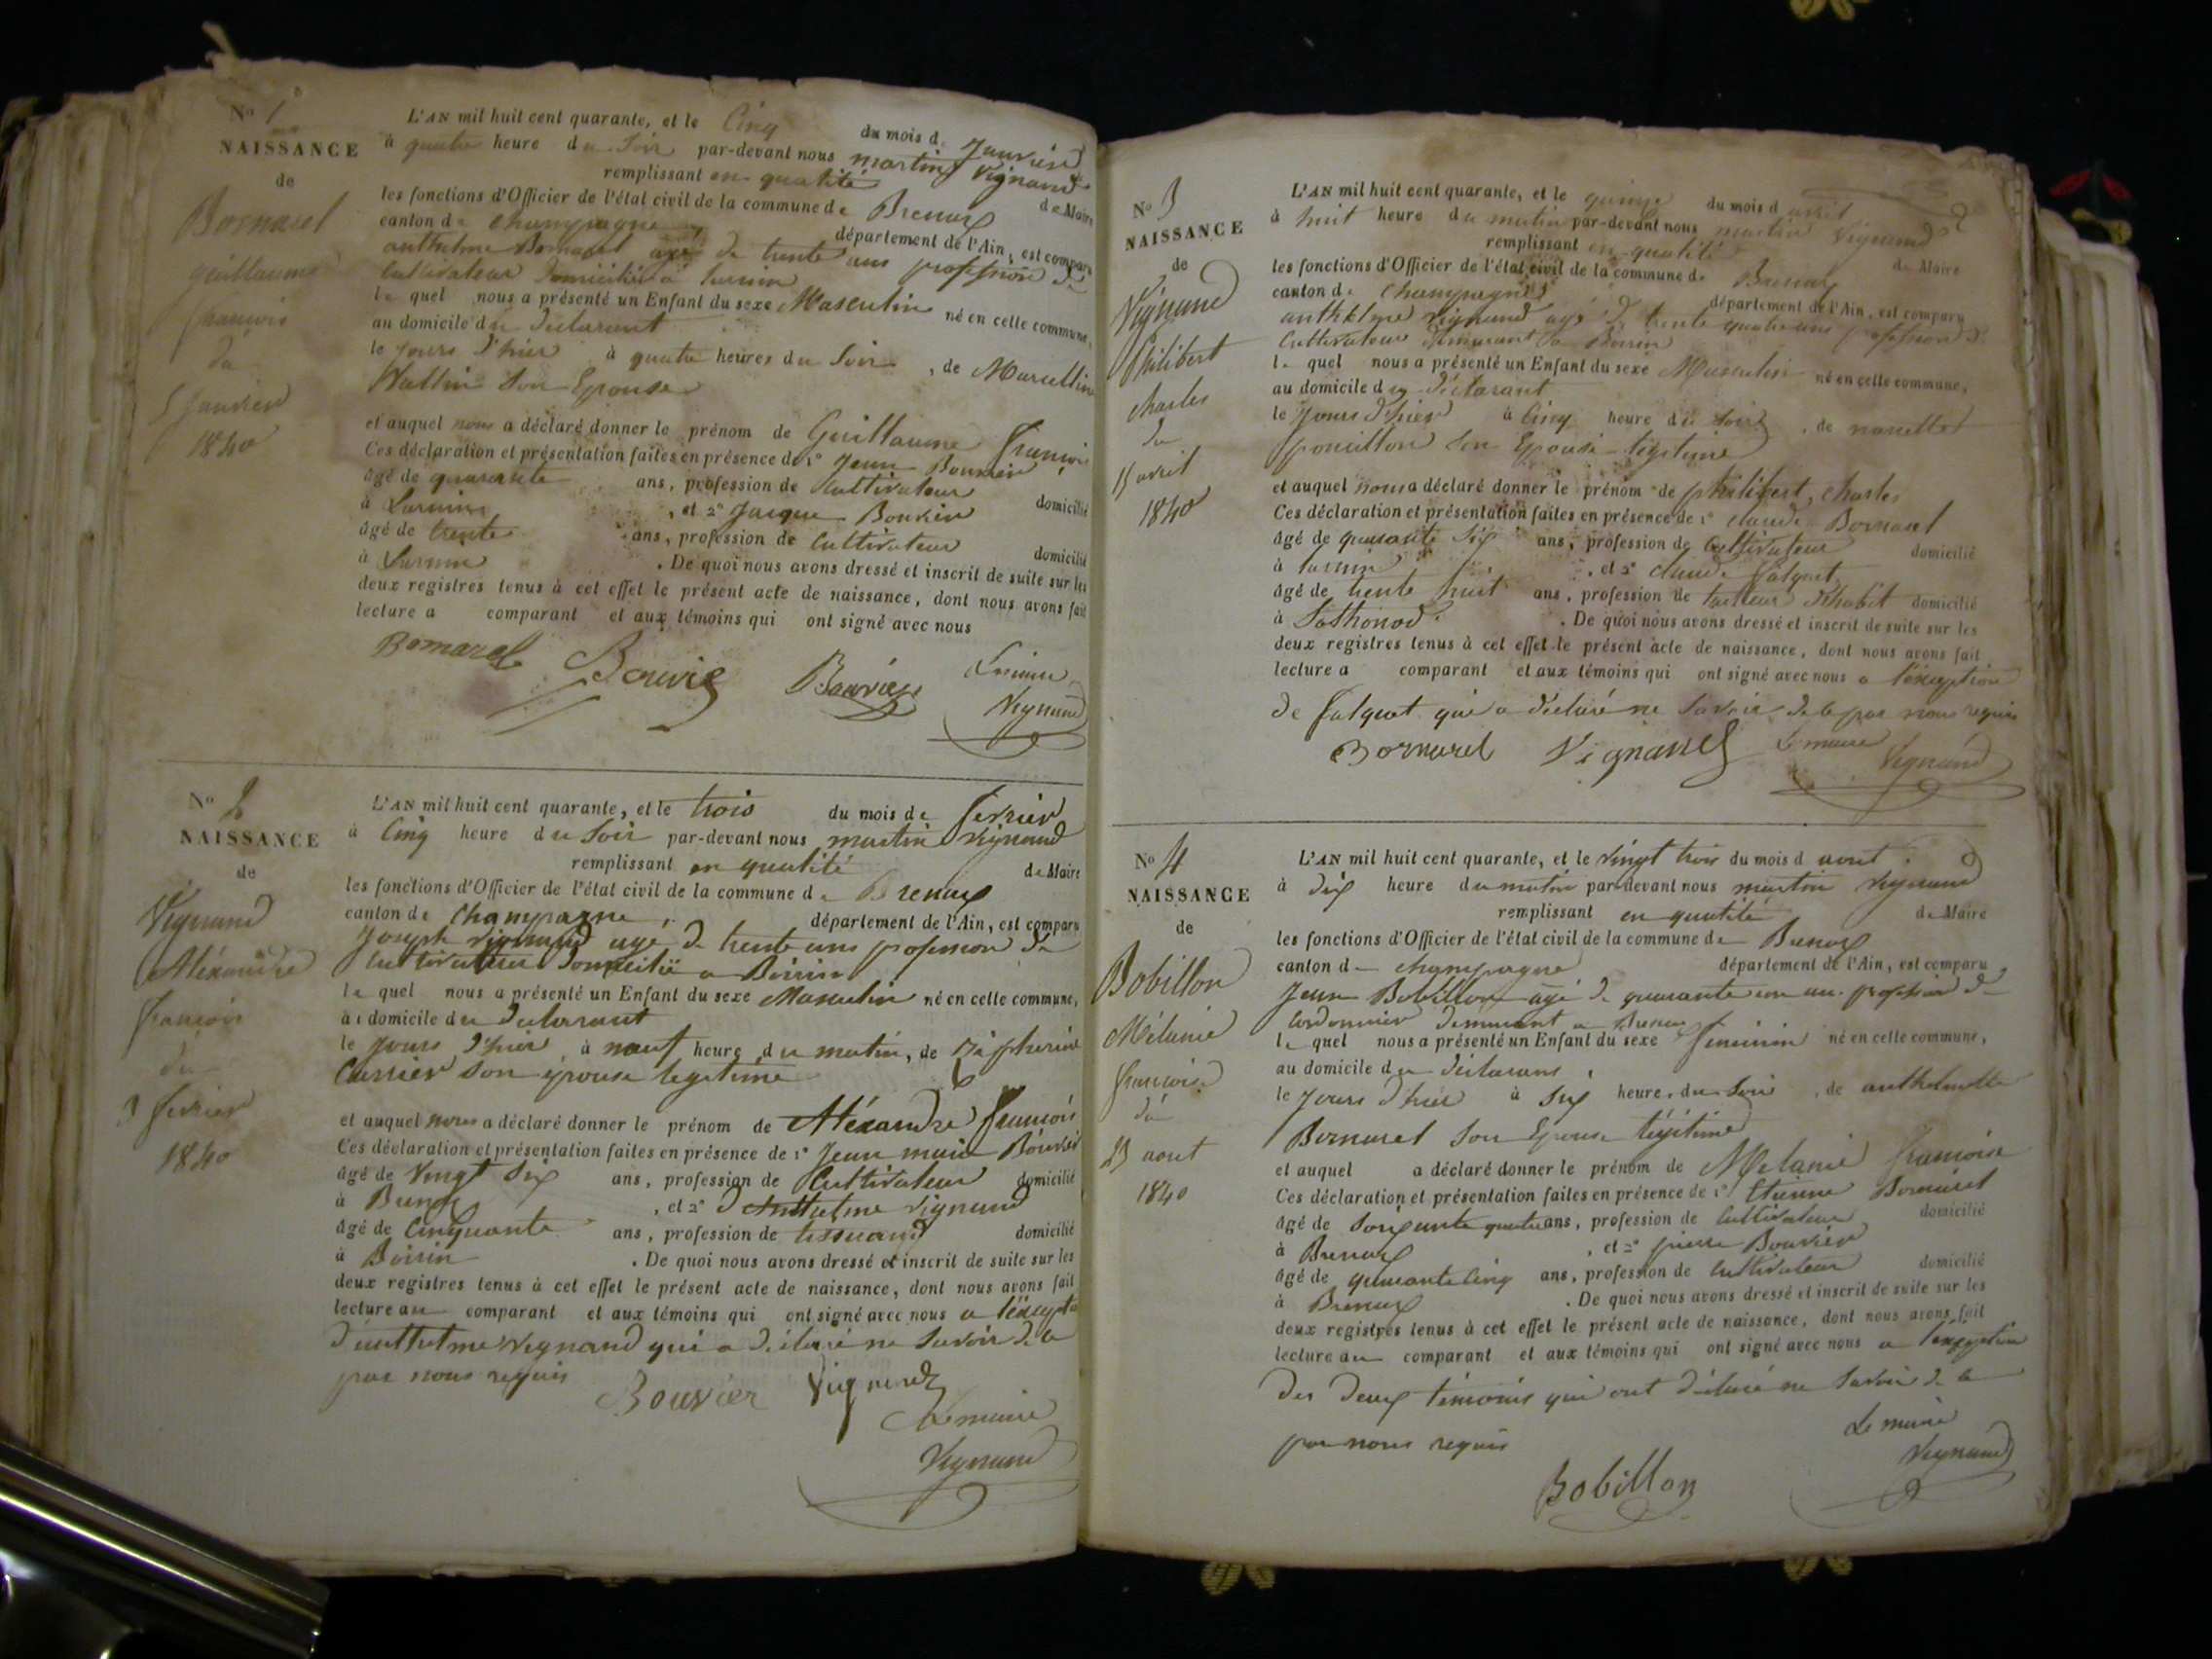 No 1
NAISSANCE
de
Bornarel
guillaume
francois
du
5 Janvier
1840
L'AN mil huit cent quarante, et le Cinq du mois de Janvier
à quatre heure du Soir par-devant nous martin Vignand
remplissant en quatité de Maire
les fonctions d'Officier de l'état civil de la commune de Brenaz
canton de champagne, département de l'Ain, est comparu
anthelme Bornarel agé de trente ans profession de
Cultivateur Domicilié à
le quel nous a présenté un Enfant du sexe Masculin né en cette commune,
au domicile du Declarant
le jours d'hier à quatre heures du Soir, de Marcelline
Wattin Son Epouse
et auquel nous a déclaré donner le prénom de Guillaume françois
Ces déclaration et présentation faites en présence de 1° Jean Bouvier
âgé de quarante ans, profession de Cultivateur domicilié
à , et 2° Jacque Bouvier
âgé de trente ans, profession de Cultivateur domicilié
à . De quoi nous avons dressé et inscrit de suite sur les
deux registres tenus à cet effet le présent acte de naissance, dont nous avons fait
lecture a comparant et aux témoins qui ont signé avec nous
Bornarel Bouvier Bouvier Le maire
Vignand
No 2
NAISSANCE
de
Vignand
Aléxandre
françois
du
3 fevrier
1840
L'AN mil huit cent quarante, et le trois du mois de fevrier
à Cinq heure du Soir par-devant nous martin Vignand
remplissant en quatité de Maire
les fonctions d'Officier de l'état civil de la commune de Brenaz
canton de Champagne, département de l'Ain, est comparu
Joseph Vignand agé de trente ans profession de
Cultivateur Domicilié a Boirin
le quel nous a présenté un Enfant du sexe Masculin né en cette commune,
au domicile du Declarant
le jours d'hier, à neuf heure du matin, de
Cussier son épouse legitime
et auquel nous a déclaré donner le prénom de Aléxandre françois
Ces déclaration et présentation faites en présence de 1° Jean marie Bouvier
âgé de Vingt Six ans, profession de Cultivateur domicilié
à Brenaz, et 2° d'Anthelme Vignand
âgé de Cinquante ans, profession de tisserand domicilié
à Boirin . De quoi nous avons dressé et inscrit de suite sur les
deux registres tenus à cet effet le présent acte de naissance, dont nous avons fait
lecture au comparant et aux témoins qui ont signé avec nous a l'éxcepti
d'anthelme Vignand qui a déclaré ne Savoir de ce
par nous requis
Bouvier Vignand
Le maire
Vignand
No 3
NAISSANCE
de
Vignand
Philibert
charles
du
15 avril
1840
L'AN mil huit cent quarante, et le quinze du mois d avril
à huit heure du matin par-devant nous martin Vignand
remplissant en quatité de Maire
les fonctions d'Officier de l'état civil de la commune de Brenaz
canton de Champagne département de l'Ain, est comparu
anthelme Vignand agé de trente quatre ans profession de
Cultivateur demeurant a Boirin
le quel nous a présenté un Enfant du sexe Masculin né en cette commune,
au domicile du déclarant
le Jours d'hier à Cinq heure du Soir, de
poncillon Son Epouse legitime
et auquel nous a déclaré donner le prénom de philibert, charles
Ces déclaration et présentation faites en présence de 1° claude Bornarel
âgé de quarante Six ans, profession de Cultivateur domicilié
à , et 2° claude falquet
âgé de trente huit ans, profession de tailleur d'habit domicilié
à Sothonod . De quoi nous avons dressé et inscrit de suite sur les
deux registres tenus à cet effet le présent acte de naissance, dont nous avons fait
lecture a comparant et aux témoins qui ont signé avec nous a l'éxception
de falquet qui a déclaré ne Savoir de ce par nous requis
Bornarel Vignand Le maire
Vignand
No 4
NAISSANCE
de
Bobillon
Mélanie
françoise
du
23 aout
1840
L'AN mil huit cent quarante, et le Vingt trois du mois d aout
à dix heure du matin par-devant nous martin Vignand
remplissant en quatité de Maire
les fonctions d'Officier de l'état civil de la commune de Brenaz
canton de champagne département de l'Ain, est comparu
Jean Bobillon agé de quarante un an profession de
Cordonnier demeurant a Brenaz
le quel nous a présenté un Enfant du sexe feminin né en cette commune,
au domicile du déclarant,
le Jours d'hier à Six heures du Soir, de anthelmette
Bornarel Son Epouse légitime
et auquel a déclaré donner le prénom de Melanie francoise
Ces déclaration et présentation faites en présence de 1° Etienne Bornarel
âgé de Soixante quatre ans, profession de Cultivateur domicilié
à Brenaz, et 2° pierre Bouvier
âgé de quarante Cinq ans, profession de Cultivateur domicilié
à Brenaz . De quoi nous avons dressé et inscrit de suite sur les
deux registres tenus à cet effet le présent acte de naissance, dont nous avons fait
lecture au comparant et aux témoins qui ont signé avec nous a l'exception
des deux témoins qui ont déclaré ne Savoir de ce
par nous requis
Le maire
Vignand
Bobillon